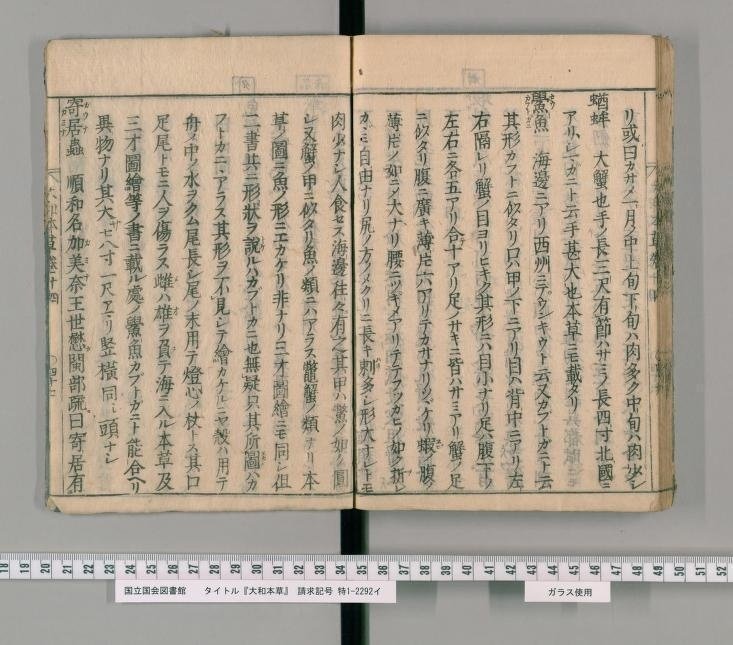 リ或曰カサメ一月ノ中上旬下旬ハ肉多ク中旬ハ肉少シ
蝤蛑 大蟹也手ノ長二尺有節ハサミノ長四寸北國ニ
アリシマカニト云手甚大也本草ニモ載タリ
鱟魚 海邊ニアリ西州ニテウンキウト云又カブトガニト云
其形カフトニ似タリ口ハ甲ノ下ニアリ目ハ背中ニアリ左
右隔レリ蟹ノ目ヨリヒキク其形ニハ目小ナリ足ハ腹下ノ
左右ニ各五アリ合十アリ足ノサキニ皆ハサミアリ蟹ノ足
ニ似タリ腹ニ廣キ薄片六アリテカサナリツヽケリ蝦ノ腹ノ
薄片ノ如ニメ大ナリ腰ニツギメアリテテフツガヒノ如ク折レ
カヽミ自由ナリ尻ノ方ノメクリニ長キ刺多シ形大ナレトモ
肉少ナシ人食セス海邊往々有之其甲ハ鱉ノ如ク圓
シ又蟹ノ甲ニ似タリ魚ノ類ニハアラス龞蟹ノ類ナリ本
草ノ圖ニ魚ノ形ニエカケリ非ナリ三才圖繪ニモ同シ但
二書共ニ形狀ヲ說ルハカブトカニ也無疑只其所圖ハカ
フトカニヽアラス其形ヲ不見シテ繪カケルニヤ殼ハ用テ
舟ノ中ノ水ヲクム尾長シ尾ノ末用テ燈心ノ杖トス其口
足尾トモニ人ヲ傷ラス雌ハ雄ヲ負テ海ニ入ル本草及
三才圖繪等ノ書ニ載ル處ノ鱟魚カブトガニト能合ヘリ
異物ナリ其大サ七八寸一尺アマリ竪橫同シ頭ナシ
寄居蟲 順和名加美奈王世懋閩部疏曰寄居有
大和本草卷十四
国立国会図書館 タイトル『大和本草』 請求記号 特1-2292イ
ガラス使用
18 19 20 21 22 23 24 25 26 27 28 29 30 31 32 33 34 35 36 37 38 39 40 41 42 43 44 45 46 47 48 49 50 51 52